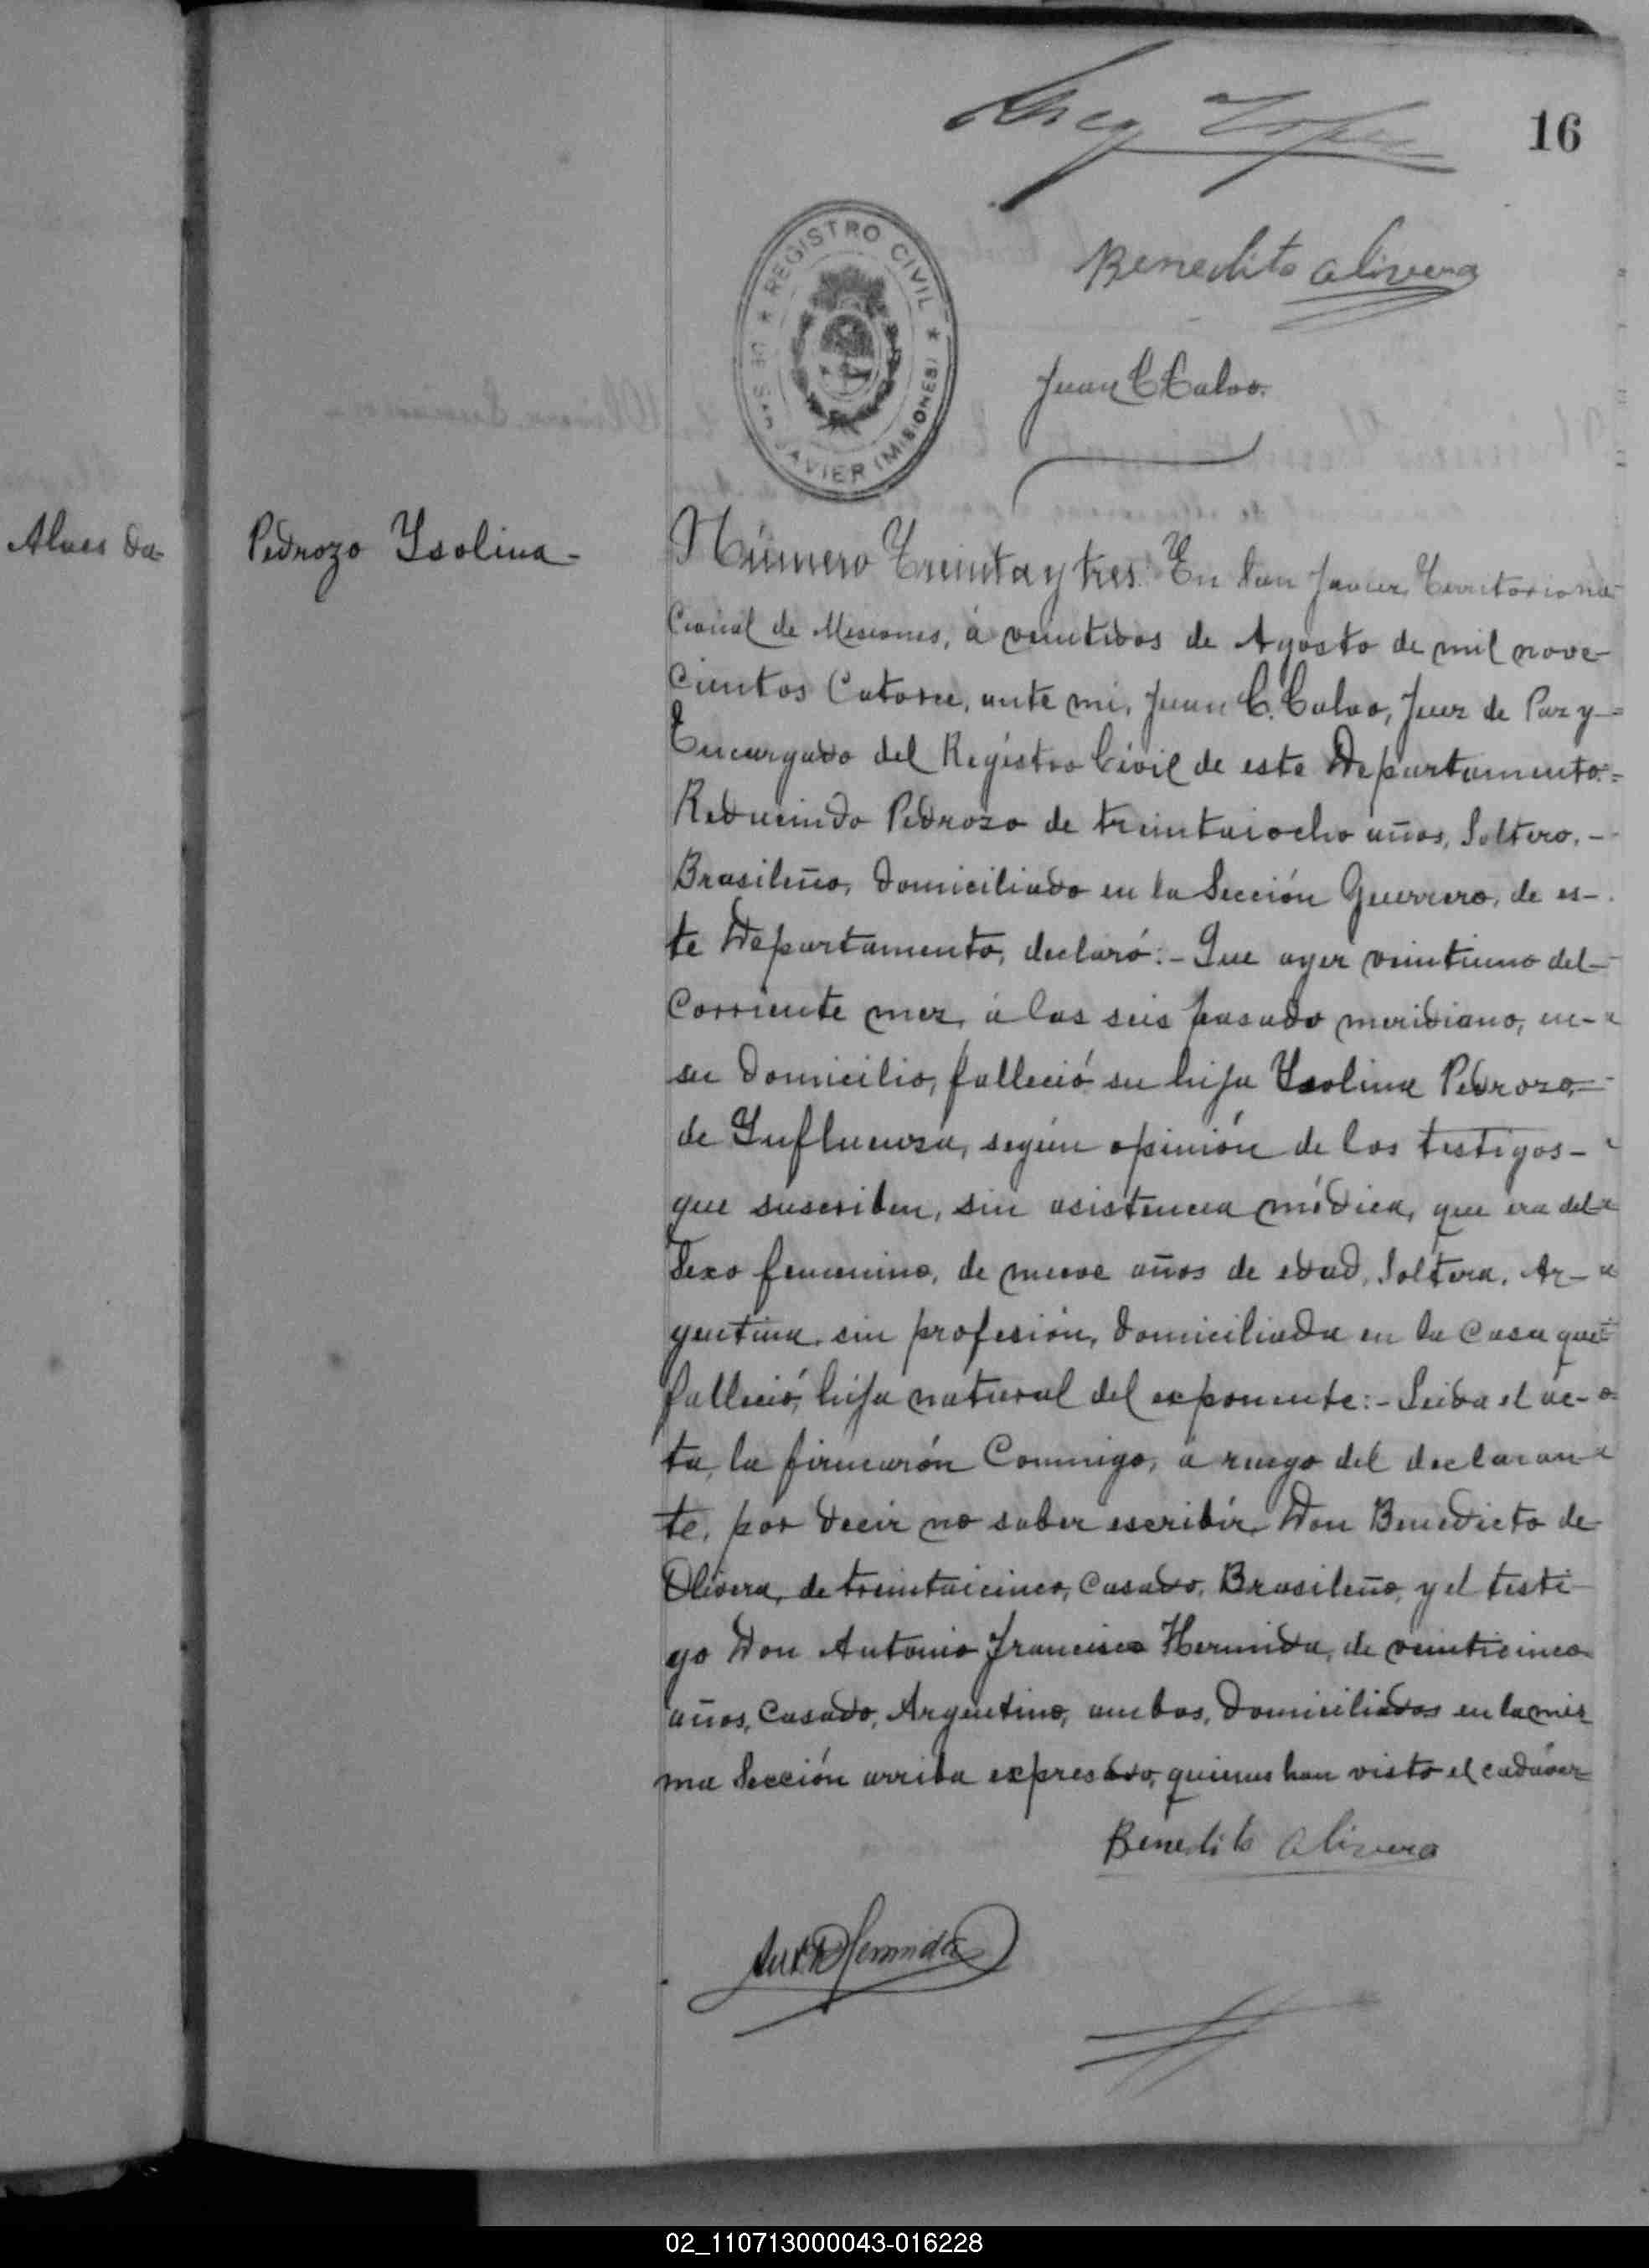 16
REGISTRO CIVIL
DE SAN JAVIER (MISIONES)
Benedito Olivera
Juan C Calvo.
Alves da
Pedrozo Ysolina -
Número Treinta y tres. En San Javier, Territorio na-
cional de Misiones, á veintidos de Agosto de mil nove-
cientos Catorce, ante mi, Juan C. Calvo, Juez de Paz y
Encargado del Registro Civil de este Departamento.=
Reducindo Pedrozo de treintaiocho años, Soltero, -
Brasileño, domiciliado en la Sección Guerrero, de es-
te Departamento, declaró:- Que ayer veintiuno del
Corriente mez, á las seis pasado meridiano, en-
su domicilio, falleció su hija Ysolina Pedrozo,
de Ynfluenza, según opinión de los testigos-
que suscriben, sin asistencia médica, que era del
Sexo femenino, de nueve años de edad, Soltera, Ar-
gentina, sin profesión, domiciliada en la Casa que
falleció, hija natural del exponente:- Leida el ac-
ta, la firmarón Conmigo, á ruego del declaran-
te, por decir no saber escribir, Don Benedicto de
Olivera, de treintaicinco, Casado, Brasileño, y el testi-
go Don Antonio Francisco Hermida, de veinticinco
años, Casado, Argentino, ambos, domiciliados en la mis-
ma Sección arriba expresado, quienes han visto el cadáver
Benedito Olivera
Hermida
02_110713000043-016228